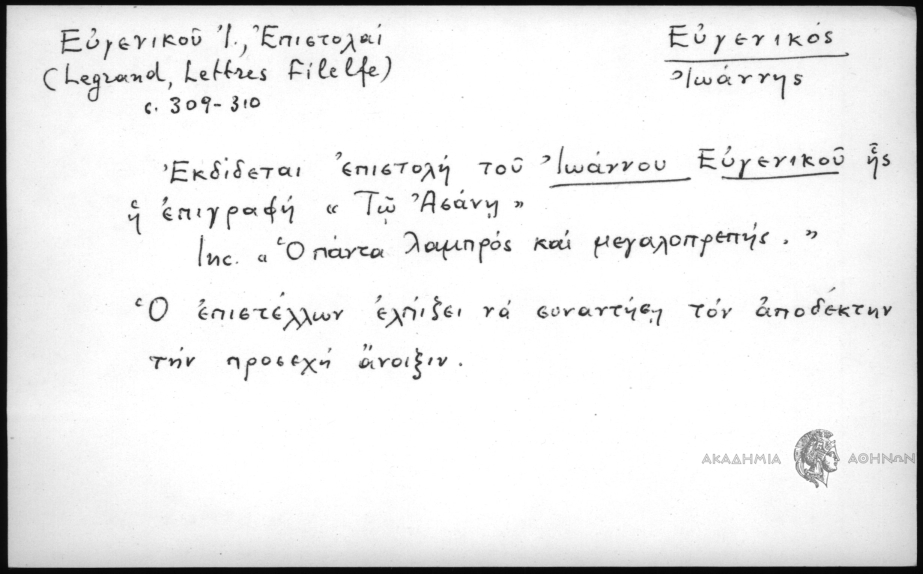 Εὐγενικοῦ Ἰ., Ἐπιστολαί
(Legrand, Lettres Filelfe)
σ. 309-310
Εὐγενικός
Ἰωάννης
Ἐκδίδεται ἐπιστολή τοῦ Ἰωάννου Εὐγενικοῦ ἧς
ἡ ἐπιγραφή « Τῷ Ἀσάνῃ »
Inc. « Ὁ πάντα λαμπρός καί μεγαλοπρεπής . »
Ὁ ἐπιστέλλων ἐλπίζει νά συναντήσῃ τόν ἀποδέκτην
τήν προσεχῆ ἄνοιξιν .
ΑΚΑΔΗΜΙΑ ΑΘΗΝΩΝ